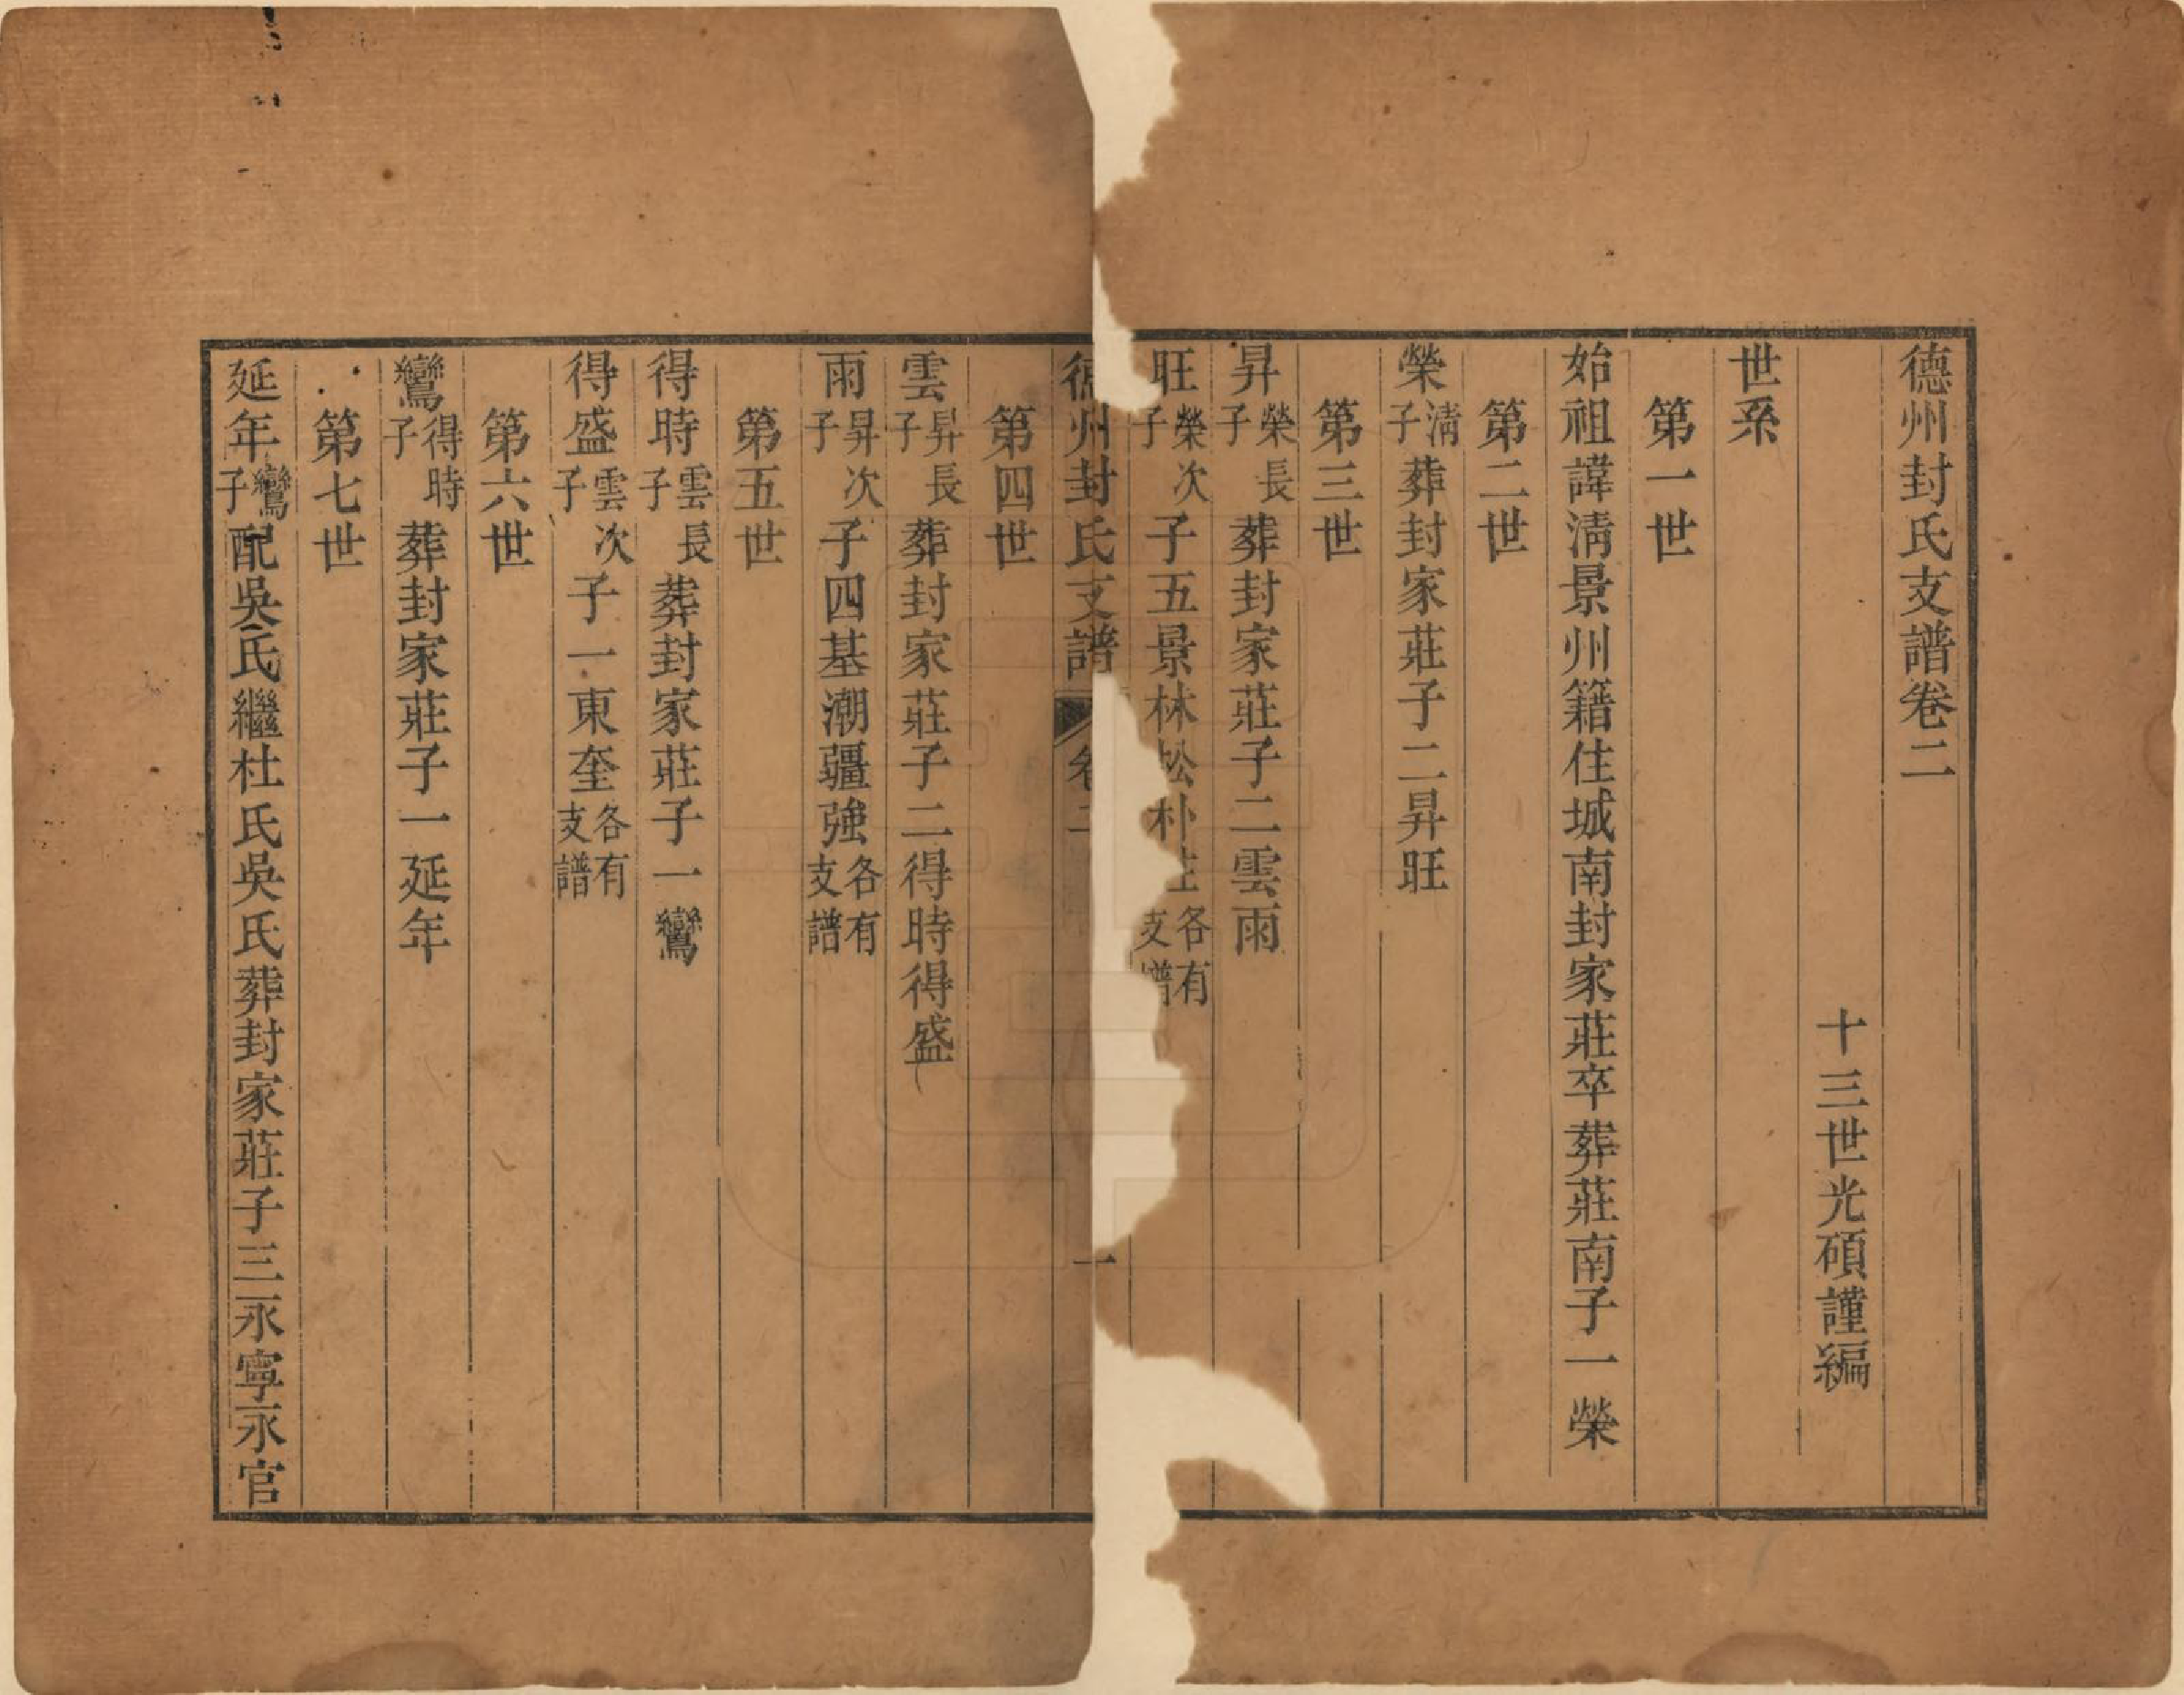 德州封氏支譜卷二
十三世光碩謹編
世系
第一世
始祖諱淸景州籍住城南封家莊卒葬莊南子一榮
第二世
榮淸子葬封家莊子二昇旺
第三世
昇榮長子葬封家莊子二雲雨
旺榮次子子五景林松朴各有支譜
德州封氏支譜 卷二 一
第四世
雲昇長子葬封家莊子二得時得盛
雨昇次子子四基潮疆強各有支譜
第五世
得時雲長子葬封家莊子一鸞
得盛雲次子子一東奎各有支譜
第六世
鸞得時子葬封家莊子一延年
第七世
延年鸞子配吳氏繼杜氏吳氏葬封家莊子三永寧永官